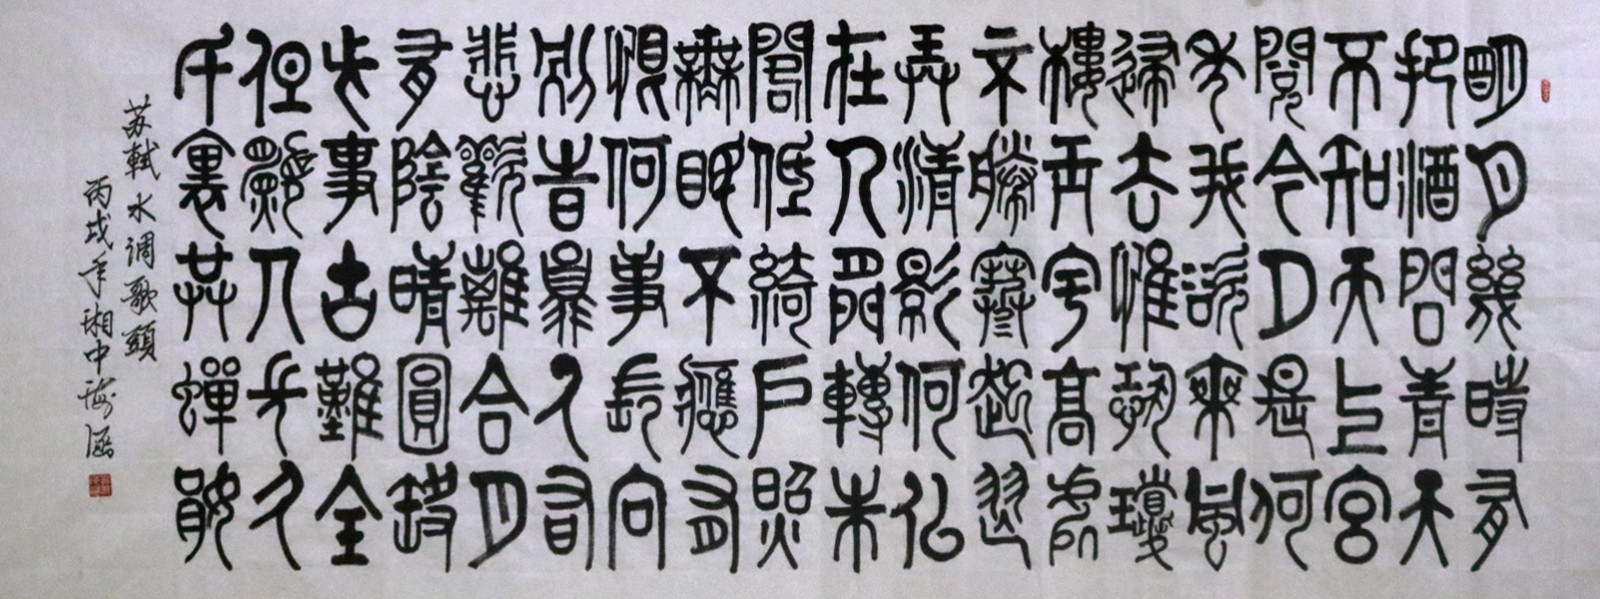 明月幾時有
把酒問青天
不知天上宮
闕今夕是何
年我欲乘風
歸去惟恐瓊
樓玉宇高處
不勝寒起舞
弄清影何似
在人間轉朱
閣低綺戶照
無眠不應有
恨何事長向
別時圓人有
悲歡離合月
有陰晴圓缺
此事古難全
但願人長久
千裏共嬋娟
苏軾水调歌頭
丙戌年湘中海涵